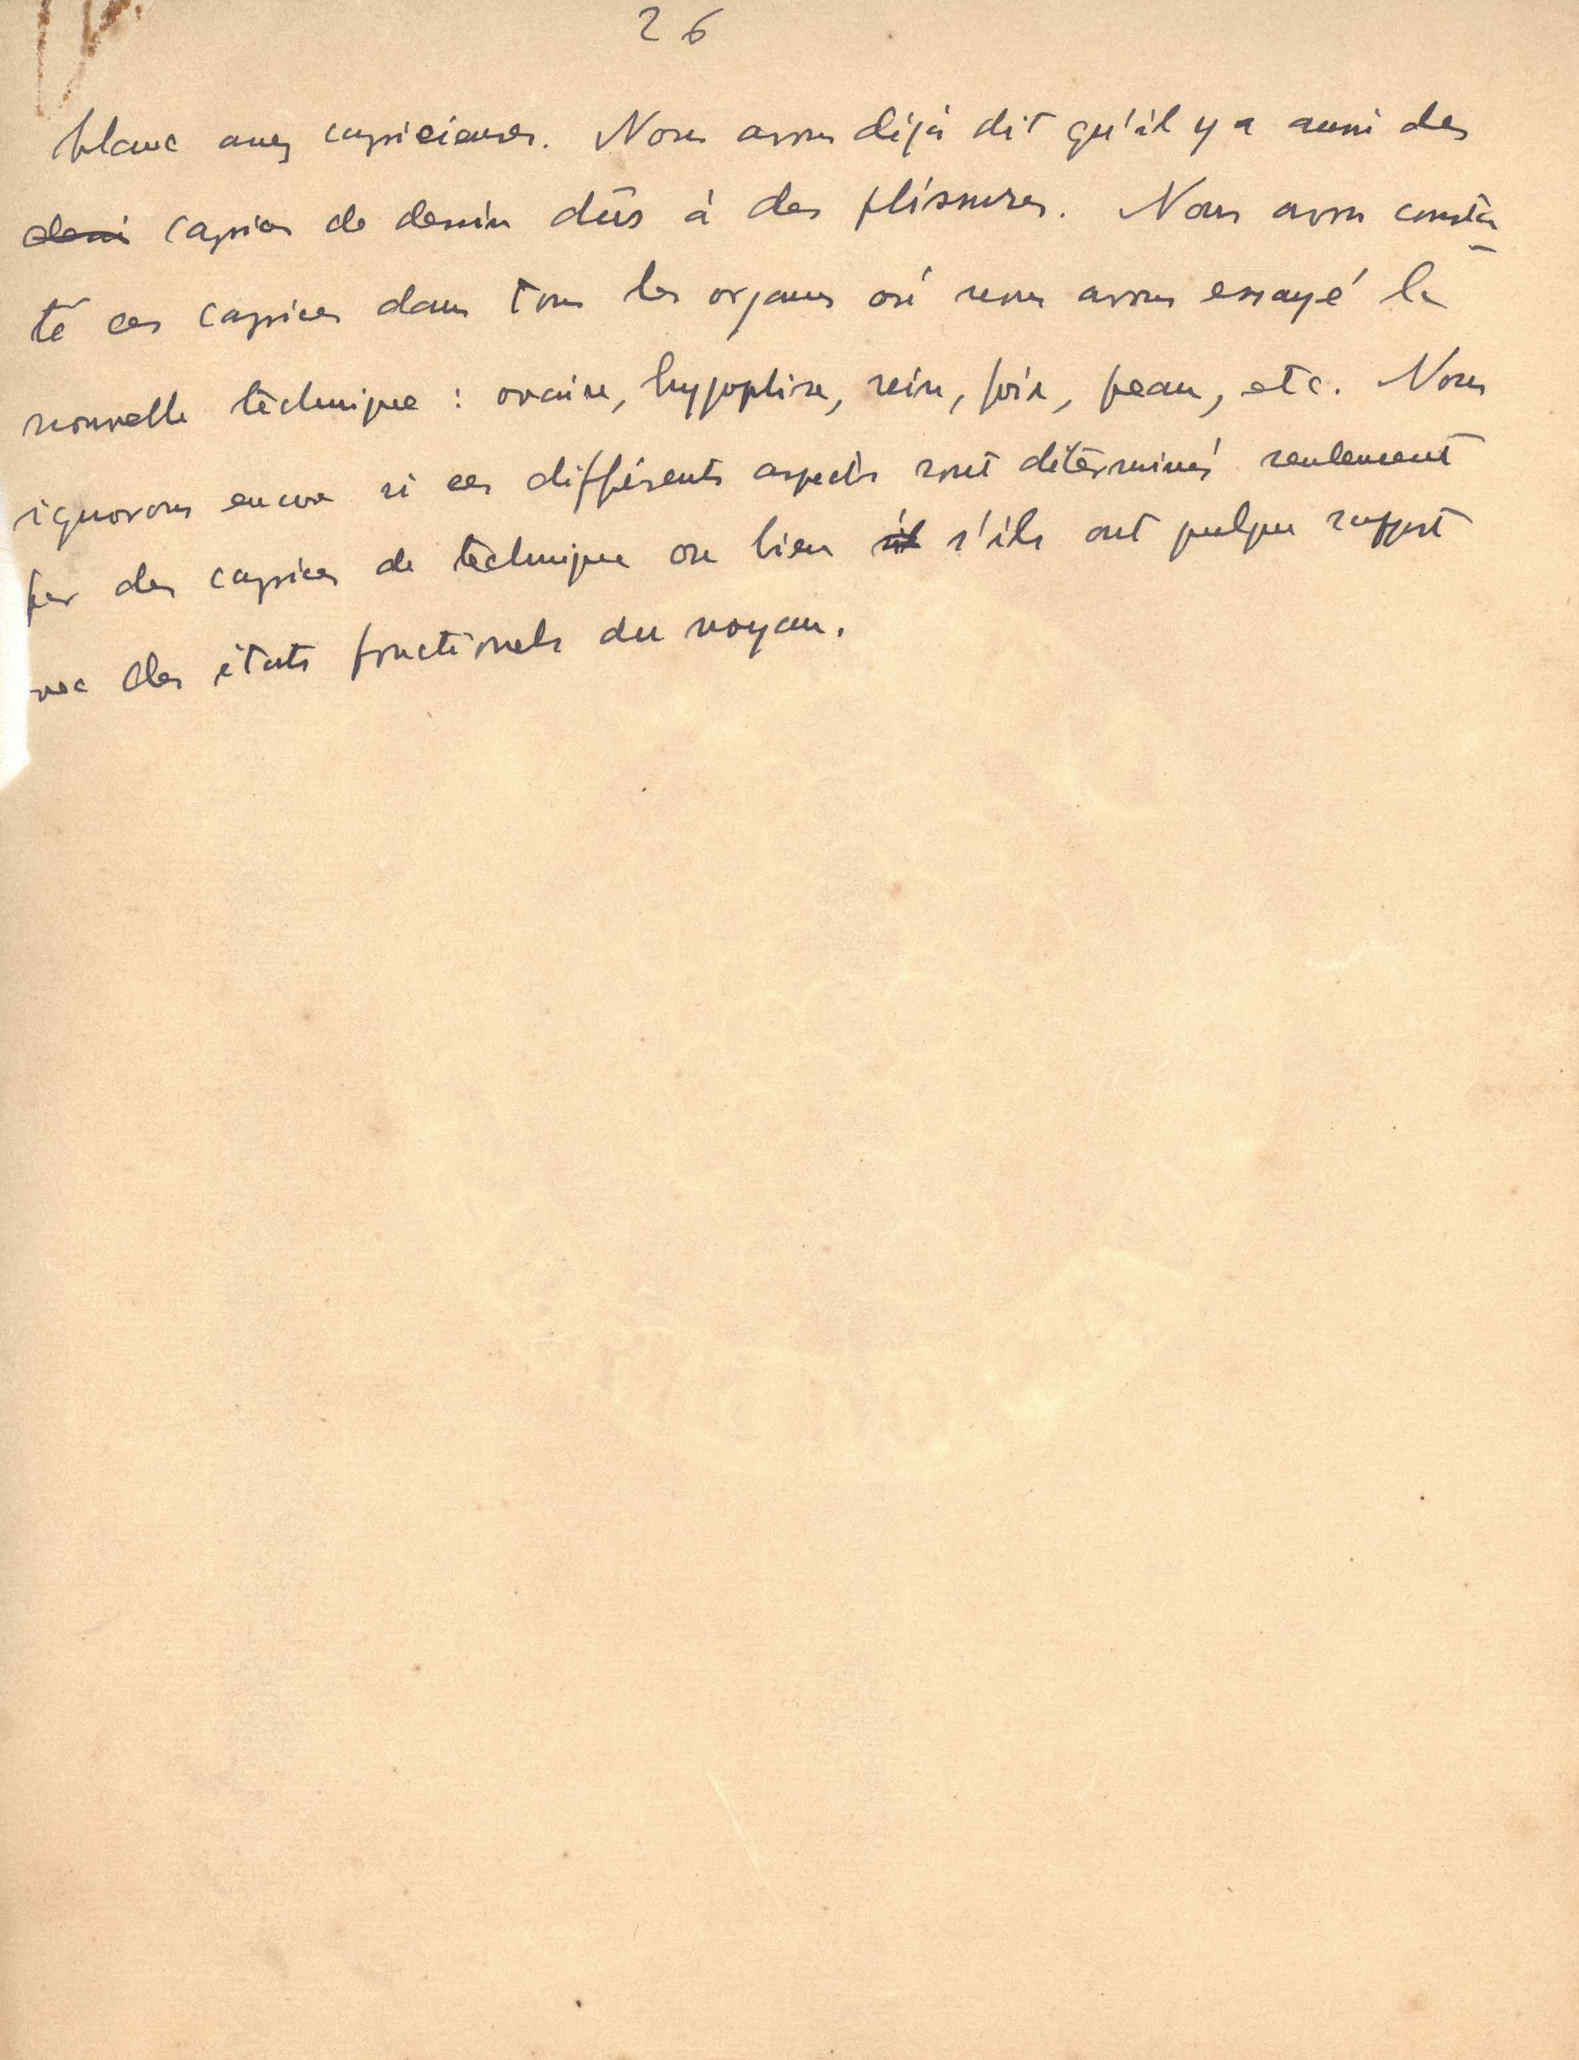 26
blanc assez capricieuses. Nous avons déjà dit qu'il y a aussi des
dessi caprices de dessin dûs à des plissures. Nous avons consta-
té ces caprices dans tous les organes où nous avons essayé la
nouvelle technique : ovaire, hypophise, rein, foie, peau, etc. Nous
ignorons encore si ces différents aspects sont déterminés seulement
par des caprices de technique ou bien s'il s'ils ont quelque rapport
vec des états fonctionels du noyau.